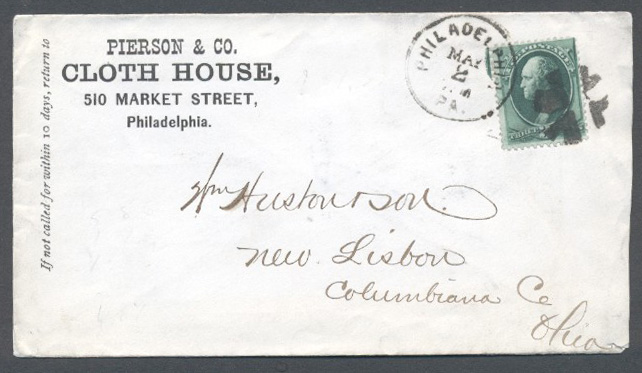 PIERSON & CO.
CLOTH HOUSE,
510 MARKET STREET,
Philadelphia.
If not called for within 10 days, return to
PHILADELPHIA
MAY
2
PA.
POSTAGE
Wm Huston & Son.
New Lisbon
Columbiana Co
Ohio